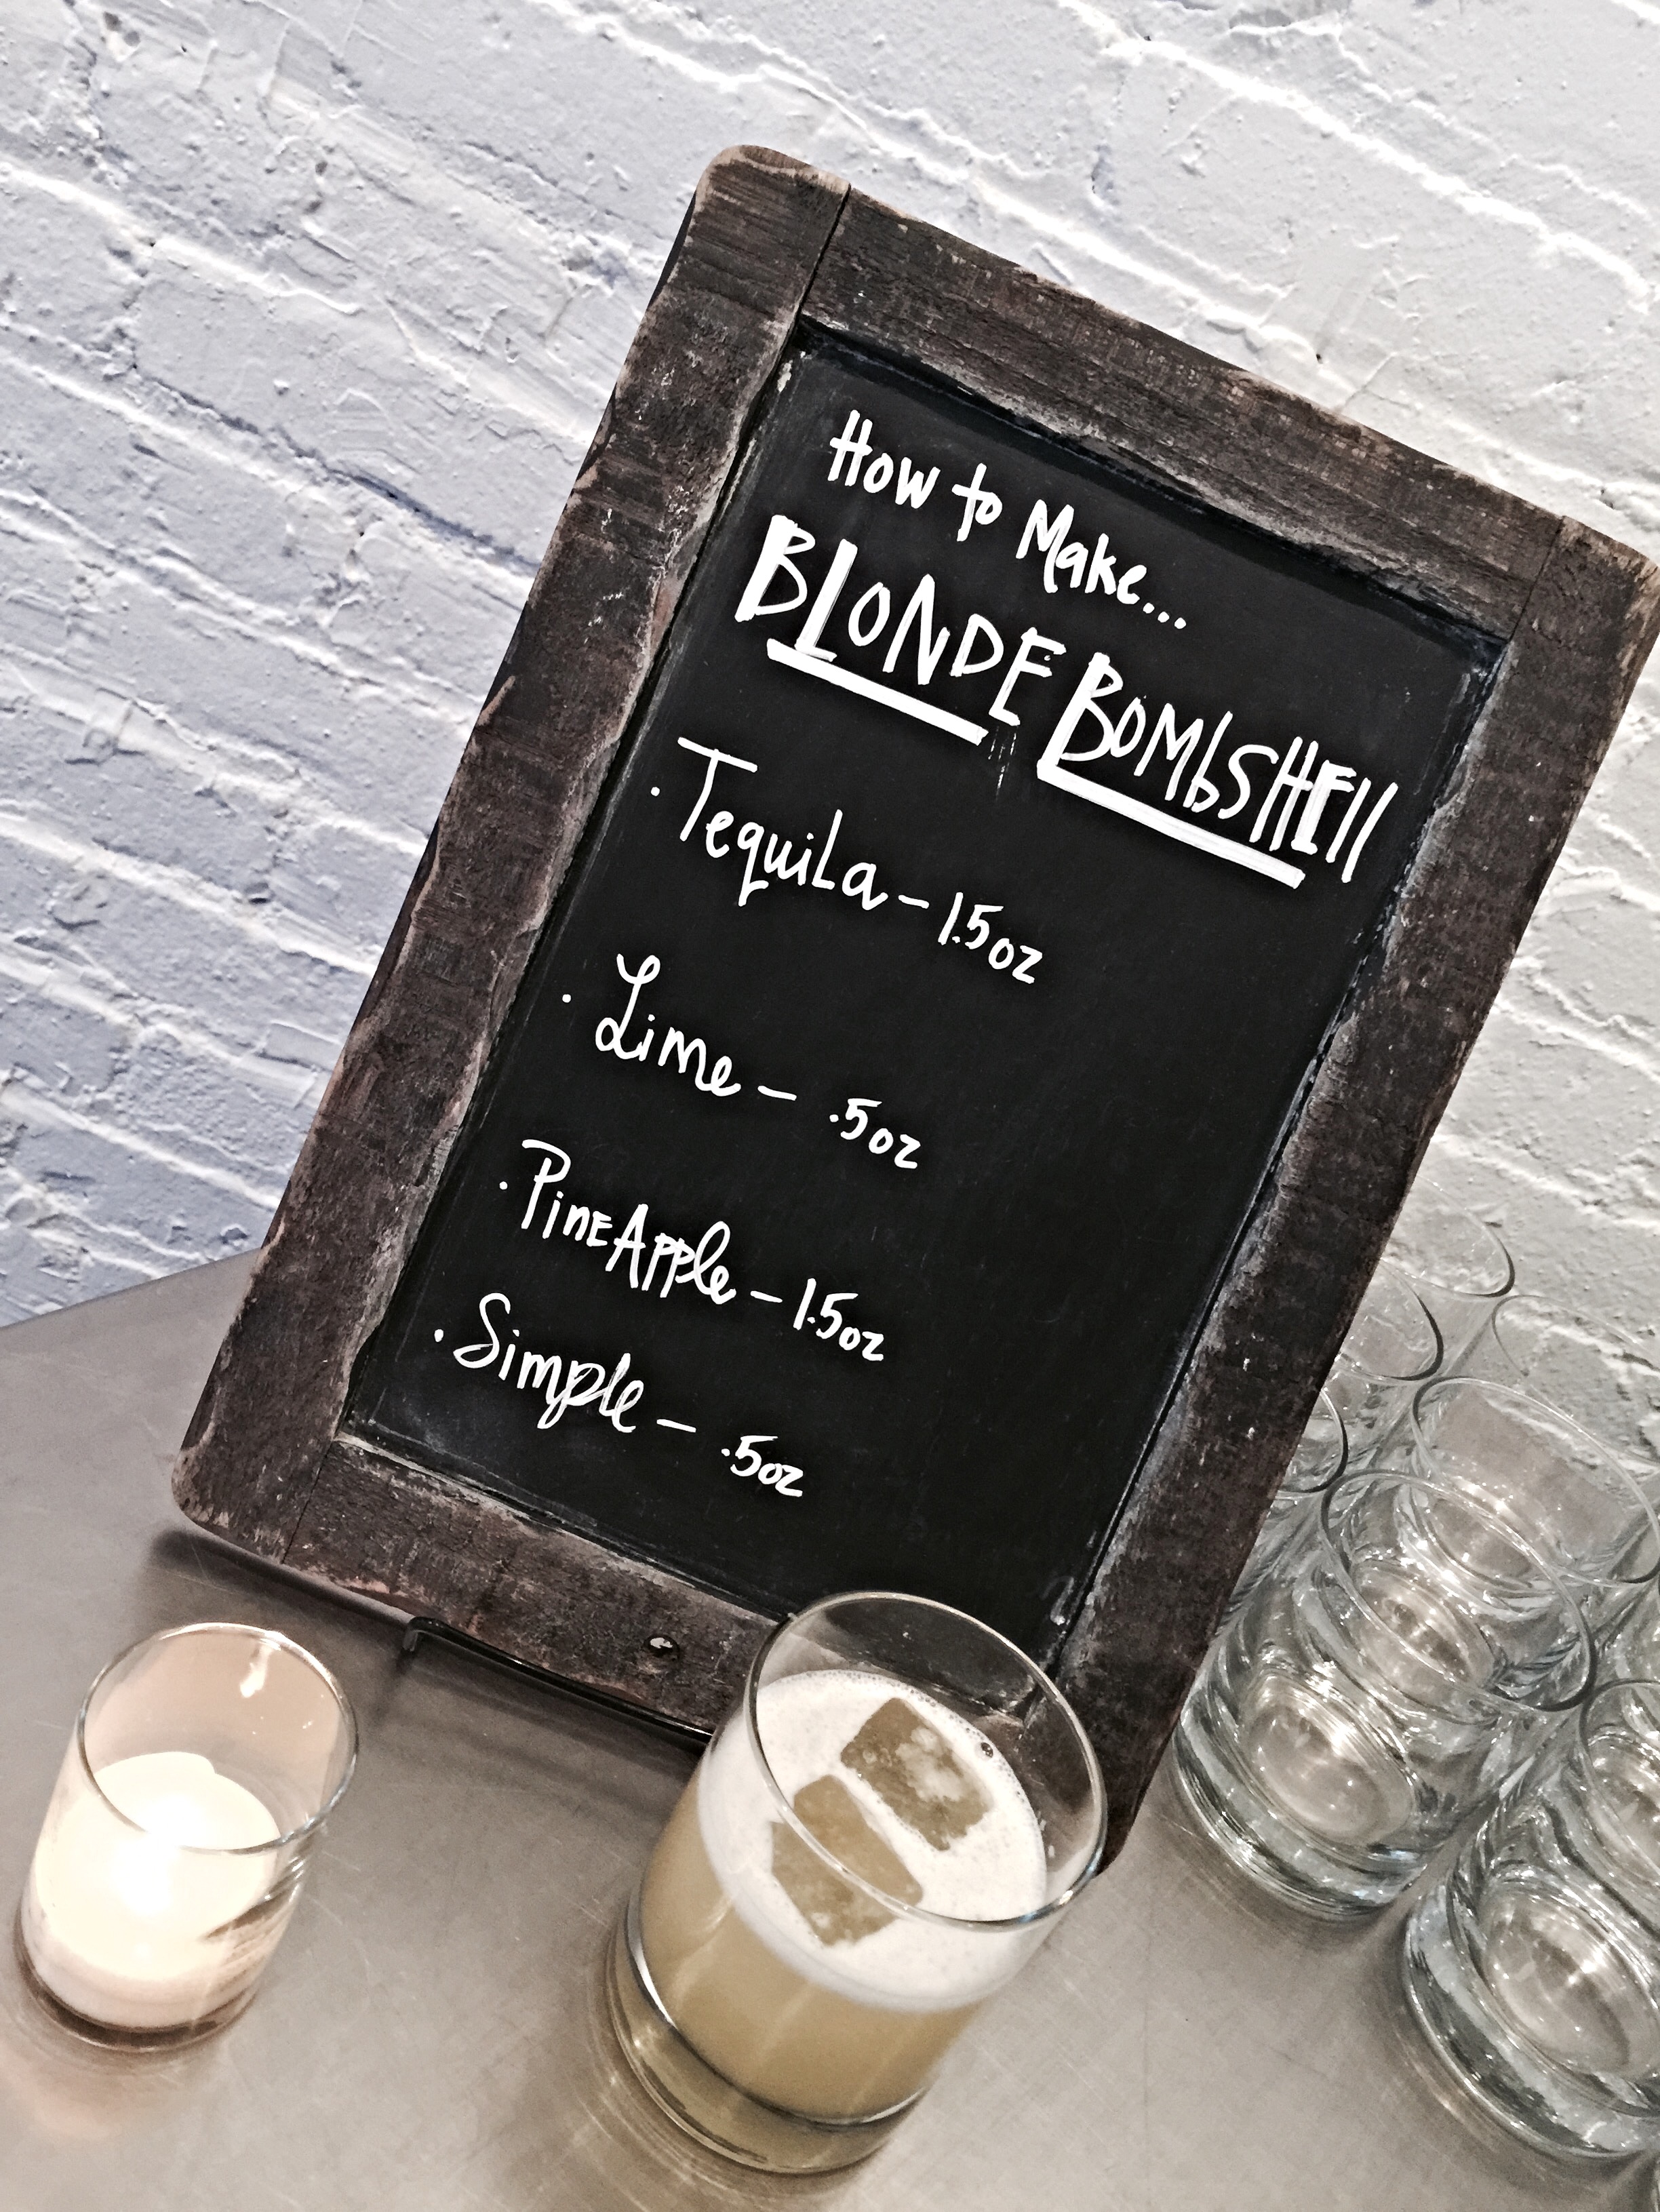 How to Make...
BLONDE BOMbSHEll
· Tequila - 1.5oz
· Lime - .5oz
· PineApple - 1.5oz
· Simple - .5oz